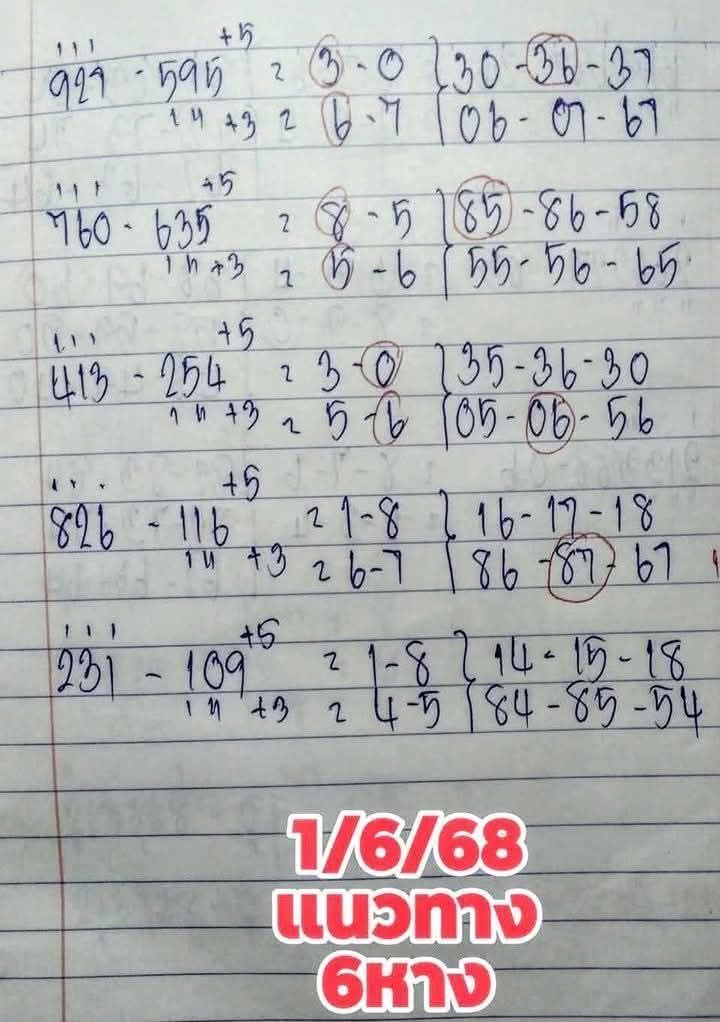 ııı +5
929 - 595 = 3 - 0 } 30 - 36 - 37
14 +3 = 6 - 7 { 06 - 07 - 67
ııı +5
760 - 635 = 8 - 5 } 85 - 86 - 58
14 +3 = 5 - 6 { 55 - 56 - 65
ııı +5
413 - 254 = 3 - 0 } 35 - 36 - 30
14 +3 = 5 - 6 { 05 - 06 - 56
ııı +5
826 - 116 = 1 - 8 } 16 - 17 - 18
14 +3 = 6 - 7 { 86 - 87 - 67
ııı +5
231 - 109 = 1 - 8 } 14 - 15 - 18
14 +3 = 4 - 5 { 84 - 85 - 54
1/6/68
แนวทาง
6หาง